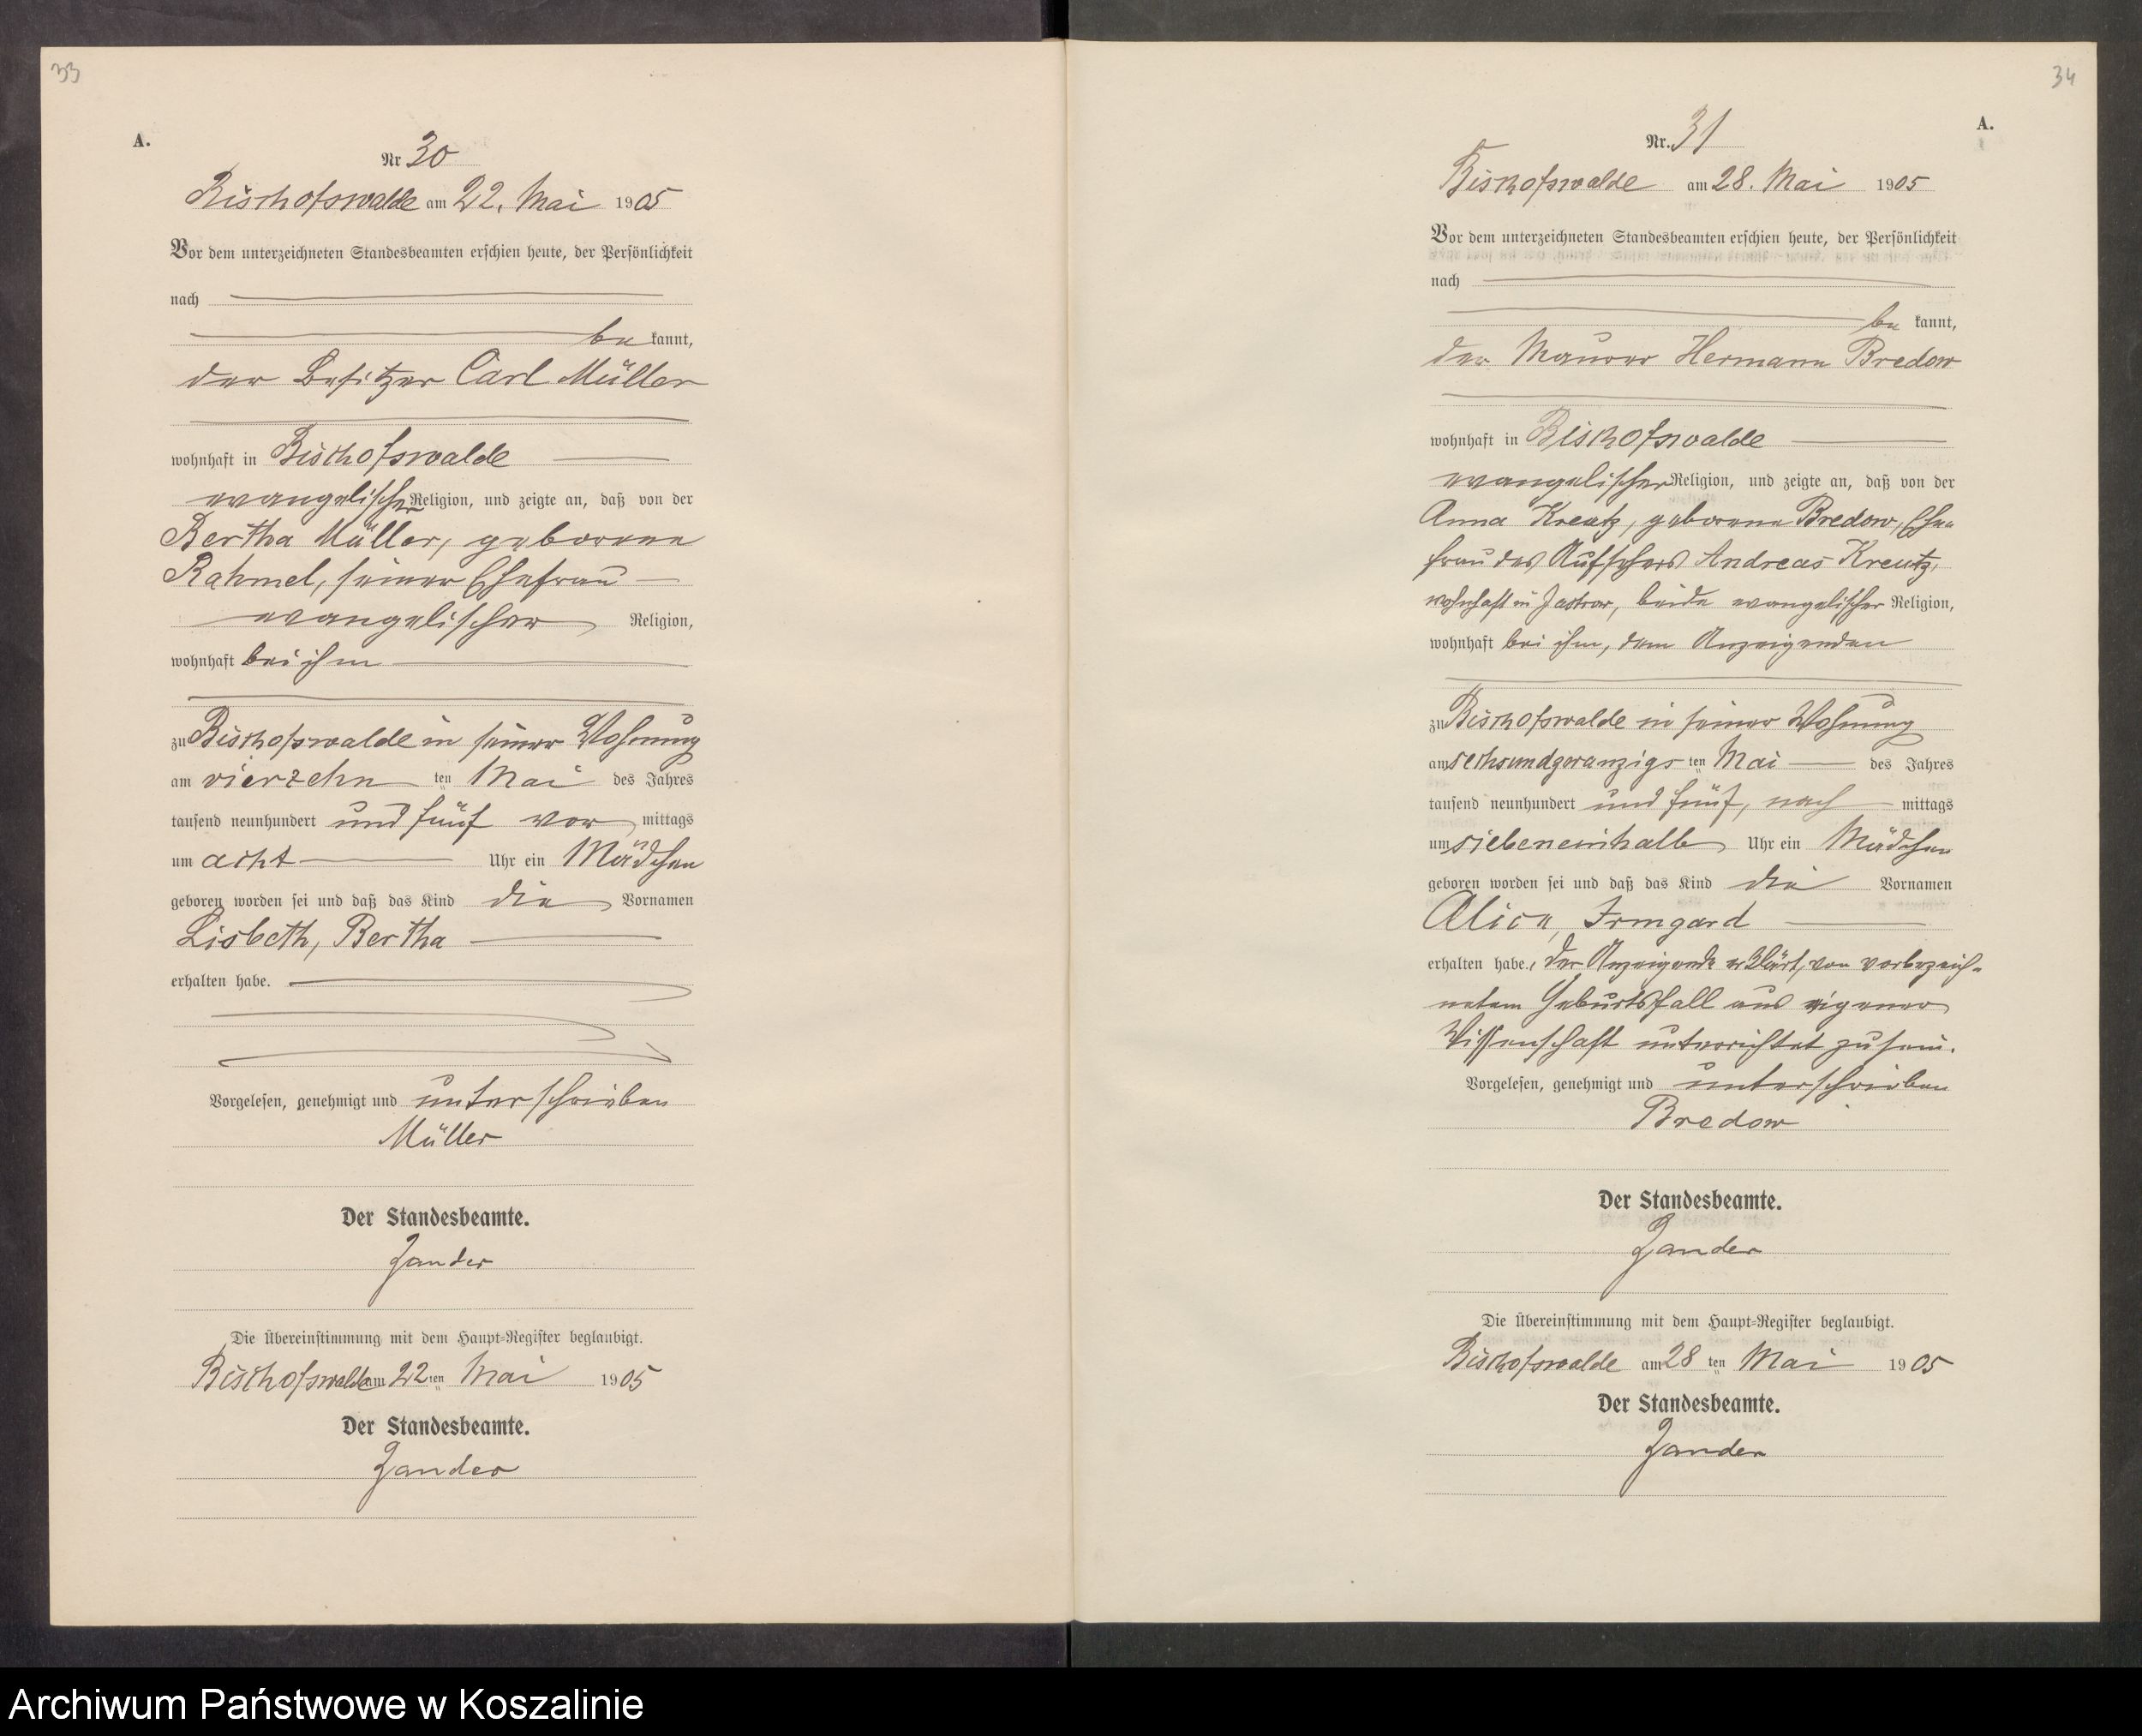 33
A.
Nr 30
Bischofswalde am 22. Mai 1905
Vor dem unterzeichneten Standesbeamten erschien heute, der Persönlichkeit
nach
be kannt,
der Besitzer Carl Müller
wohnhaft in Bischofswalde
evangelischer Religion, und zeigte an, daß von der
Bertha Müller, geborene
Rahmel, seiner Ehefrau
evangelischer Religion,
wohnhaft bei ihm
zu Bischofswalde in seiner Wohnung
am vierzehn ten Mai des Jahres
tausend neunhundert und fünf vor mittags
um acht Uhr ein Mädchen
geboren worden sei und daß das Kind die Vornamen
Lisbeth, Bertha
erhalten habe.
Vorgelesen, genehmigt und unterschrieben
Müller
Der Standesbeamte.
Zander
Die Übereinstimmung mit dem Haupt-Register beglaubigt.
Bischofswalde am 22 ten Mai 1905
Der Standesbeamte.
Zander
34
A.
Nr. 31
Bischofswalde am 28. Mai 1905
Vor dem unterzeichneten Standesbeamten erschien heute, der Persönlichkeit
nach
be kannt,
der Maurer Hermann Bredow
wohnhaft in Bischofswalde
evangelischer Religion, und zeigte an, daß von der
Anna Kreutz, geborene Bredow, Ehe-
frau des Aufsehers Andreas Kreutz,
wohnhaft in Jastrow, beide evangelischer Religion,
wohnhaft bei ihm, dem Anzeigenden
zu Bischofswalde in seiner Wohnung
am sechsundzwanzigs ten Mai des Jahres
tausend neunhundert und fünf, nach mittags
um siebeneinhalb Uhr ein Mädchen
geboren worden sei und daß das Kind die Vornamen
Alice, Irmgard
erhalten habe., der Anzeigende erklärt, von vorbezeich-
netem Geburtsfall aus eigener
Wissenschaft unterrichtet zu sein.
Vorgelesen, genehmigt und unterschrieben
Bredow
Der Standesbeamte.
Zander
Die Übereinstimmung mit dem Haupt-Register beglaubigt.
Bischofswalde am 28 ten Mai 1905
Der Standesbeamte.
Zander
Archiwum Państwowe w Koszalinie